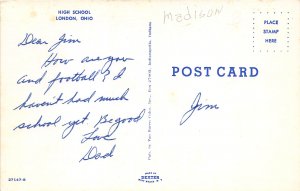 HIGH SCHOOL
LONDON, OHIO
Madison
PLACE
STAMP
HERE
Dear Jim
How are you
and football? I
haven't had much
school yet. Be good
Love
Dad
POST CARD
Jim
MADE BY
DEXTER
27147-B